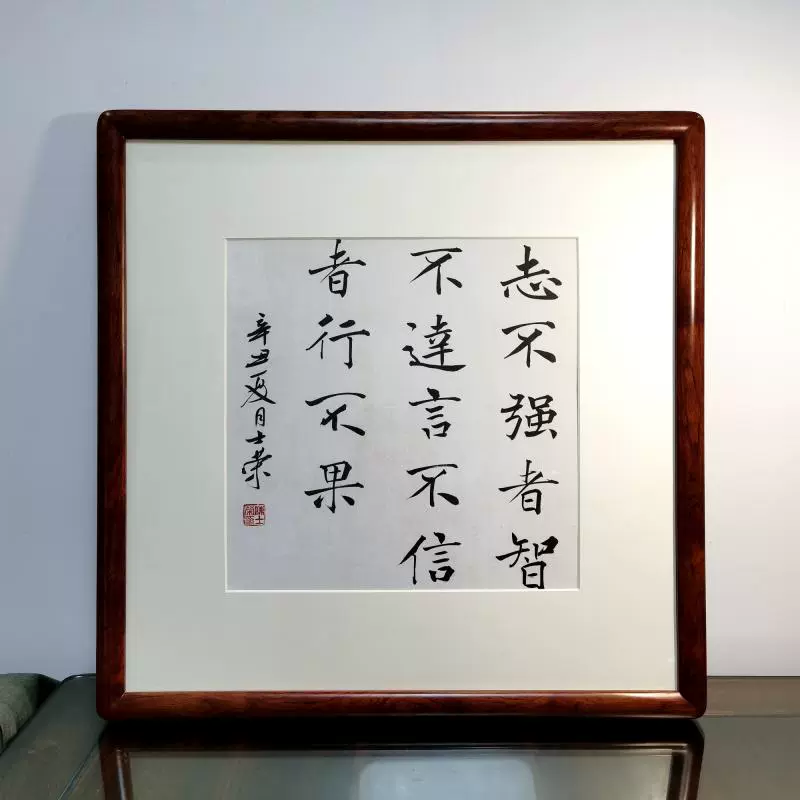 志不强者智
不達言不信
者行不果
辛丑夏月士荣